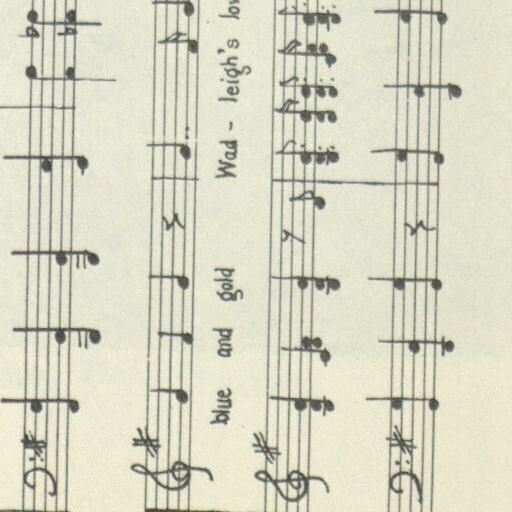 blue and gold Wad - leigh's